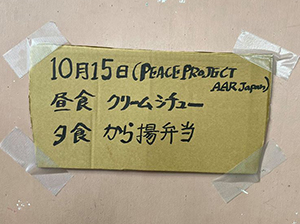 10月15日(PEACE PROJECT
AAR Japan)
昼食 クリームシチュー
夕食 から揚弁当